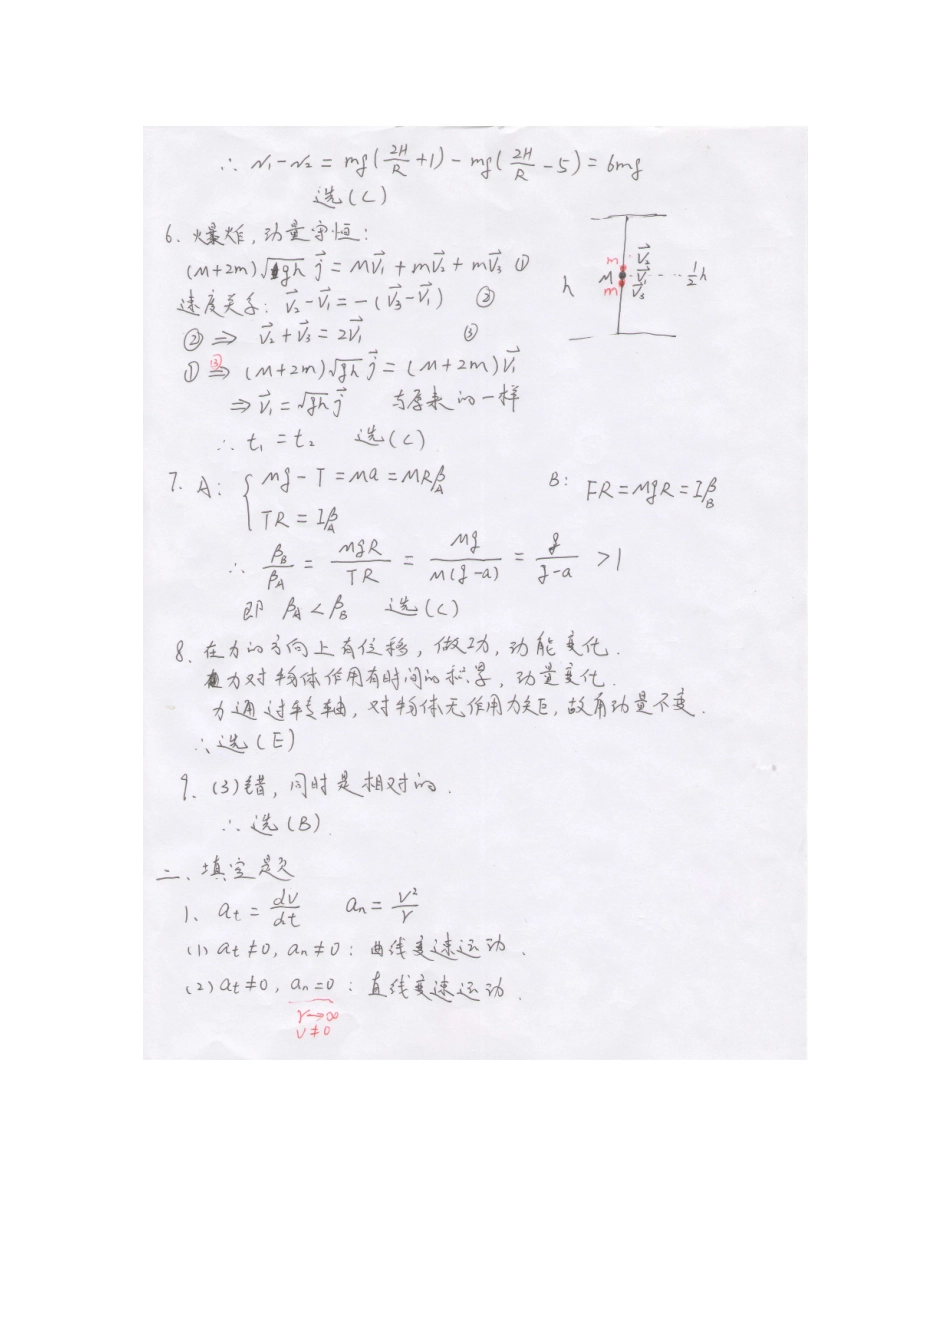 ∴ N₁-N₂ = mg(2H/R +1) - mg(2H/R -5) = 6mg
选(C)
6、爆炸,动量守恒:
(M+2m)√gh j⃗ = MV⃗₁ + mV⃗₂ + mV⃗₃ ①
速度关系: V⃗₂-V⃗₁ = -(V⃗₃-V⃗₁) ②
② ⇒ V⃗₂+V⃗₃ = 2V⃗₁ ③
① ③⇒ (M+2m)√gh j⃗ = (M+2m)V⃗₁
⇒ V⃗₁ = √gh j⃗ 与原来的一样
∴ t₁ = t₂ 选(C)
h
m V⃗₂
M V⃗₁ ½h
m V⃗₃
7、A: { Mg-T = Ma = MRβ_A
TR = Iβ_A
B: FR = MgR = Iβ_B
∴ β_B/β_A = MgR/TR = Mg/M(g-a) = g/g-a >1
即 β_A < β_B 选(C)
8、在力的方向上有位移,做功,动能变化.
力对物体作用有时间的积累,动量变化.
力通过转轴,对物体无作用力矩,故角动量不变.
∴选(E)
9、(3)错,同时是相对的.
∴选(B)
二、填空题
1、at = dv/dt an = v²/r
(1) at≠0, an≠0: 曲线变速运动.
(2) at≠0, an=0: 直线变速运动.
r→∞
v≠0